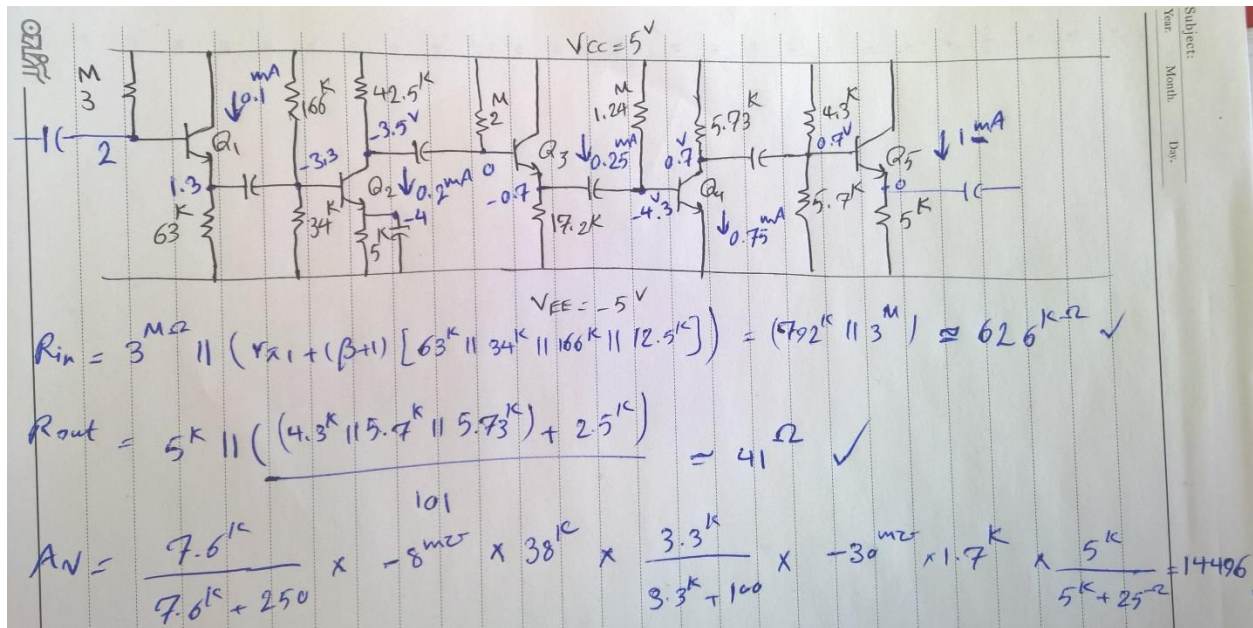 Subject:
Year. Month. Day.
VCC = 5V
M
3
0.1 mA
166K
42.5K
M
2
M
1.24
5.73K
4.3K
2
Q1
-3.3
-3.5V
Q2
0.2mA
0
Q3
0.25mA
0.7V
Q4
0.7V
Q5
1mA
1.3
63K
34K
5K
-4
-0.7
17.2K
-4.3V
0.75mA
5.7K
0
5K
VEE = -5V
Rin = 3MΩ || (rπ1 + (β+1) [63K || 34K || 166K || 12.5K]) = (792K || 3M) ≈ 626KΩ ✓
Rout = 5K || ((4.3K || 5.7K || 5.73K) + 2.5K) / 101 ≈ 41Ω ✓
AV = 7.6K / 7.6K + 250 × -8mʊ × 38K × 3.3K / 3.3K + 100 × -30mʊ × 1.7K × 5K / 5K + 25Ω = 14496